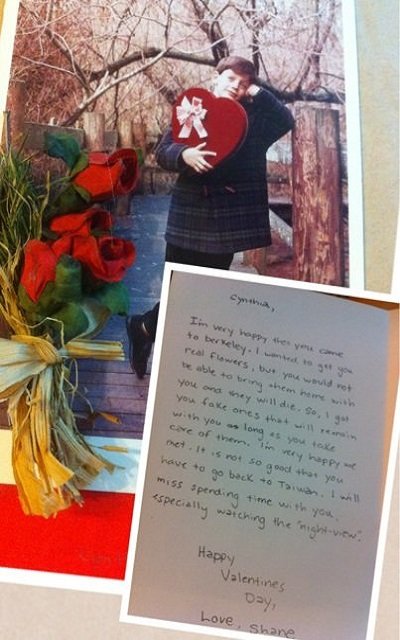 Cynthia,
I'm very happy that you came
to berkeley. I wanted to get you
real flowers, but you would not
be able to bring them home with
you and they will die. So, I got
you fake ones that will remain
with you as long as you take
care of them. I'm very happy we
met. It is not so good that you
have to go back to Taiwan. I will
miss spending time with you
especially watching the "night-view".
Happy
Valentines
Day,
Love, Shane